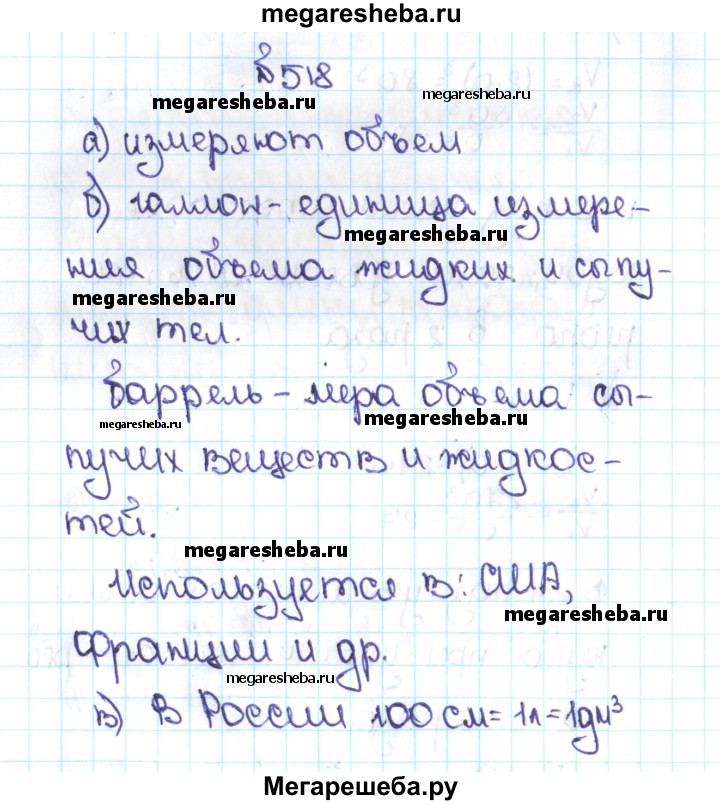 megaresheba.ru
№518
megaresheba.ru
megaresheba.ru
а) измеряют объем
б) галлон - единица измере-
megaresheba.ru
ния объема жидких и сыпу-
megaresheba.ru
чих тел.
баррель - мера объема сы-
megaresheba.ru
megaresheba.ru
пучих веществ и жидкос-
тей.
megaresheba.ru
Используется в: США,
megaresheba.ru
Франции и др.
megaresheba.ru
в) В России 100 см = 1л = 1дм³
Мегарешеба.ру